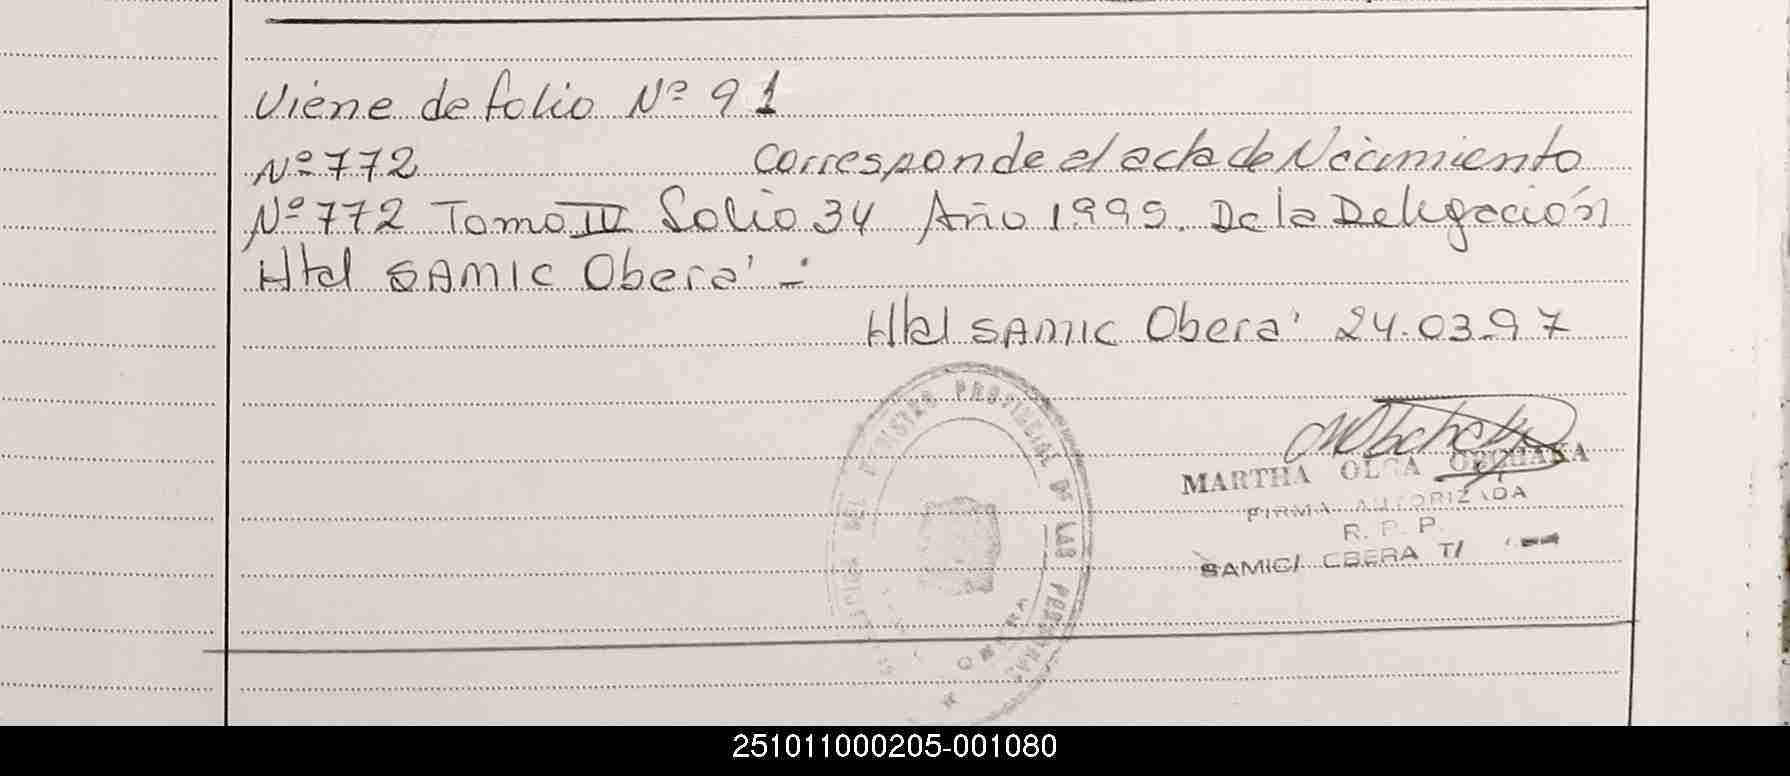 Viene de folio Nº 91
Nº 772 corresponde al acta de Nacimiento
Nº 772 Tomo IV folio 34 Año 1995. De la Delegación
Htal SAMIC Oberá -
Htal SAMIC Oberá 24.03.97
REGISTRO PROVINCIAL DE LAS PERSONAS
OBERA
MARTHA OLGA
FIRMA AUTORIZADA
R. P. P.
SAMIC/ OBERA
251011000205-001080